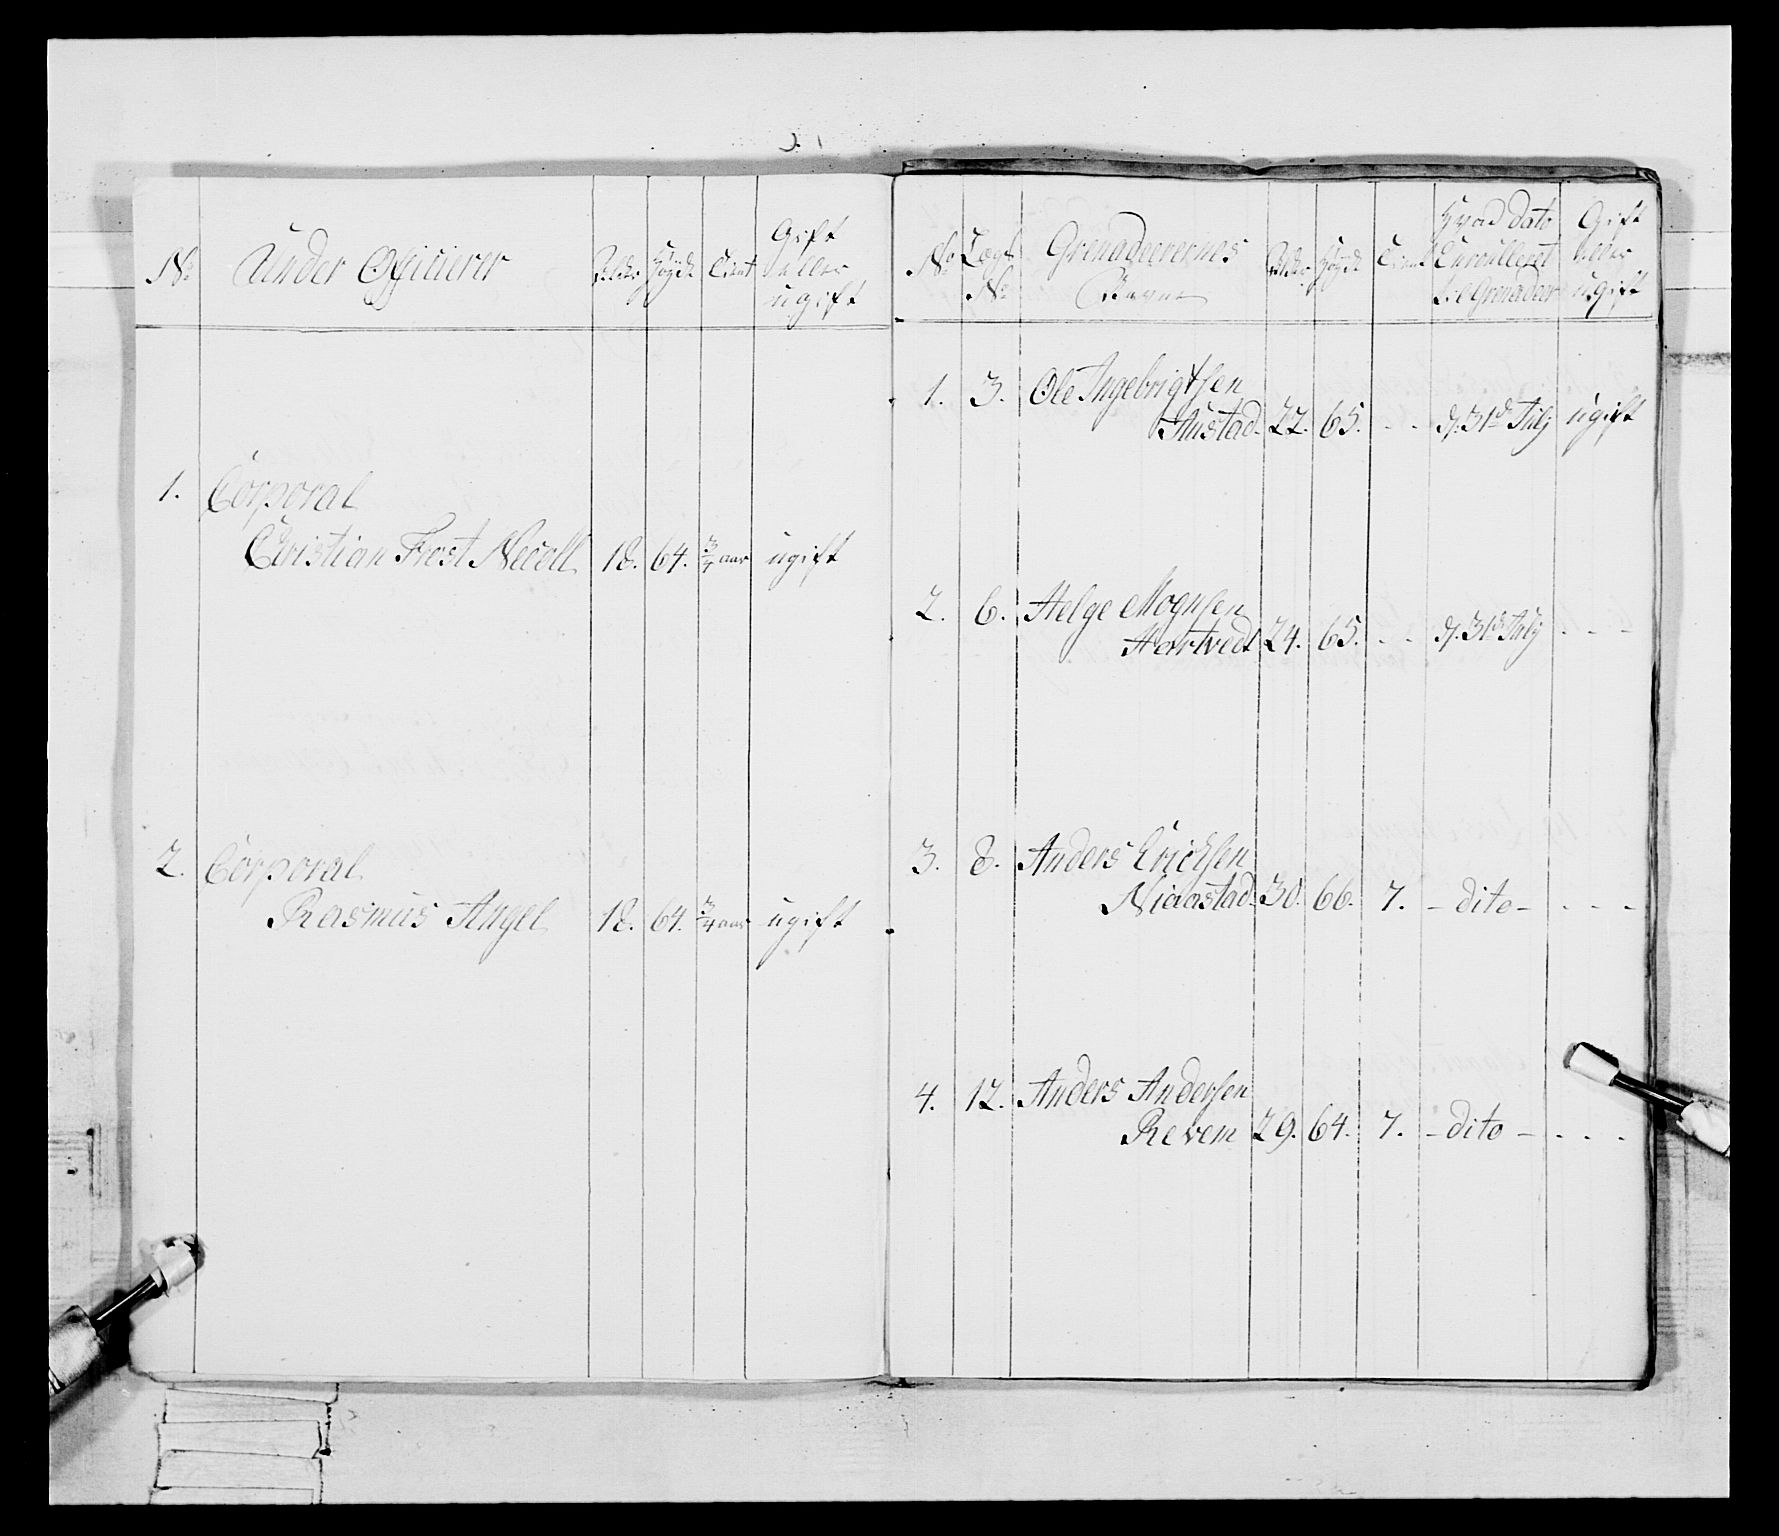 No Under Officierer Alder Høyde Tient Gift
eller
ugift
1. Corporal
Christian Frost Necoll 18. 64. 3/4 aar ugift
2. Corporal
Rasmus Angel 18. 64. 3/4 aar ugift
No Lægs No Grenadeerernes Navne Alder Høyde Tient Hvad dato Enroulleret til Grenadeer Gift eller ugift
1. 3. Ole Ingebrigtsen
Hustad. 22. 65. - - d. 31d Julj ugift
2. 6. Helge Mognsen
Hertvedt 24. 65. - - d. 31d Julj - - -
3. 8. Anders Ericksen
Niaastad. 30. 66. 7. - dito - - - -
4. 12. Anders Andersen
Revem 29. 64. 7. - dito - - - -